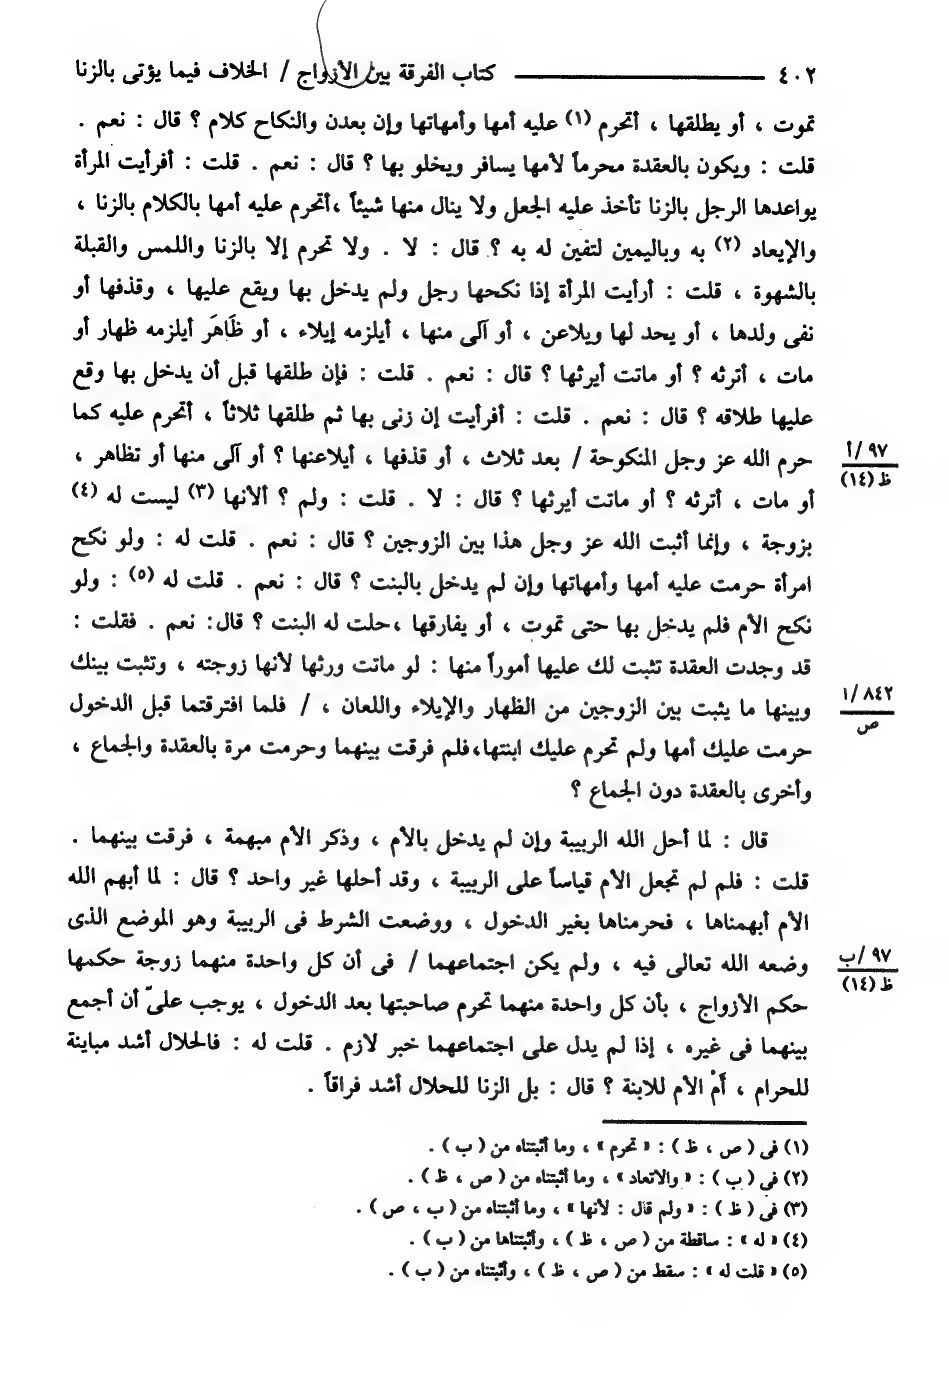 ٤٠٢ ــــــــ كتاب الفرقة بين الأزواج / الخلاف فيما يؤتى بالزنا
تموت ، أو يطلقها ، أتحرم (١) عليه أمها وأمهاتها وإن بعدن والنكاح كلام ؟ قال : نعم .
قلت : ويكون بالعقدة محرماً لأمها يسافر ويخلو بها ؟ قال : نعم . قلت : أفرأيت المرأة
يواعدها الرجل بالزنا تأخذ عليه الجعل ولا ينال منها شيئاً ،أتحرم عليه أمها بالكلام بالزنا ،
والإيعاد (٢) به وباليمين لتفين له به ؟ قال : لا . ولا تحرم إلا بالزنا واللمس والقبلة
بالشهوة ، قلت : أرأيت المرأة إذا نكحها رجل ولم يدخل بها ويقع عليها ، وقذفها أو
نفى ولدها ، أو يحد لها ويلاعن ، أو آلى منها ، أيلزمه إيلاء ، أو ظَاهَر أيلزمه ظهار أو
مات ، أترثه ؟ أو ماتت أيرثها ؟ قال : نعم . قلت : فإن طلقها قبل أن يدخل بها وقع
عليها طلاقه ؟ قال : نعم . قلت : أفرأيت إن زنى بها ثم طلقها ثلاثاً ، أتحرم عليه كما
حرم الله عز وجل المنكوحة / بعد ثلاث ، أو قذفها ، أيلاعنها ؟ أو آلى منها أو تظاهر ،
٩٧ /أ
ظ (١٤)
أو مات ، أترثه ؟ أو ماتت أيرثها ؟ قال : لا . قلت : ولم ؟ ألأنها (٣) ليست له (٤)
بزوجة ، وإنما أثبت الله عز وجل هذا بين الزوجين ؟ قال : نعم . قلت له : ولو نكح
امرأة حرمت عليه أمها وأمهاتها وإن لم يدخل بالبنت ؟ قال : نعم . قلت له (٥) : ولو
نكح الأم فلم يدخل بها حتى تموت ، أو يفارقها ،حلت له البنت ؟ قال: نعم . فقلت :
قد وجدت العقدة تثبت لك عليها أموراً منها : لو ماتت ورثها لأنها زوجته ، وتثبت بينك
وبينها ما يثبت بين الزوجين من الظهار والإيلاء واللعان ، / فلما افترقتما قبل الدخول
٨٤٢ /١
ص
حرمت عليك أمها ولم تحرم عليك ابنتها،فلم فرقت بينهما وحرمت مرة بالعقدة والجماع ،
وأخرى بالعقدة دون الجماع ؟
قال : لما أحل الله الربيبة وإن لم يدخل بالأم ، وذكر الأم مبهمة ، فرقت بينهما .
قلت : فلم لم تجعل الأم قياساً على الربيبة ، وقد أحلها غير واحد ؟ قال : لما أبهم الله
الأم أبهمناها ، فحرمناها بغير الدخول ، ووضعت الشرط فى الربيبة وهو الموضع الذى
وضعه الله تعالى فيه ، ولم يكن اجتماعهما / فى أن كل واحدة منهما زوجة حكمها
٩٧ /ب
ظ (١٤)
حكم الأزواج ، بأن كل واحدة منهما تحرم صاحبتها بعد الدخول ، يوجب علىّ أن أجمع
بينهما فى غيره ، إذا لم يدل على اجتماعهما خبر لازم . قلت له : فالحلال أشد مباينة
للحرام ، أَمْ الأم للابنة ؟ قال : بل الزنا للحلال أشد فراقاً .
(١) فى ( ص ، ظ ) : « تحرم » ، وما أثبتناه من ( ب ) .
(٢) فى ( ب ) : « والاتعاد » ، وما أثبتناه من ( ص ، ظ ) .
(٣) فى ( ظ ) : « ولم قال : لأنها » ، وما أثبتناه من ( ب ، ص ) .
(٤) « له » : ساقطة من ( ص ، ظ ) ، وأثبتناها من ( ب ) .
(٥) « قلت له » : سقط من ( ص ، ظ ) ، وأثبتناه من ( ب ) .